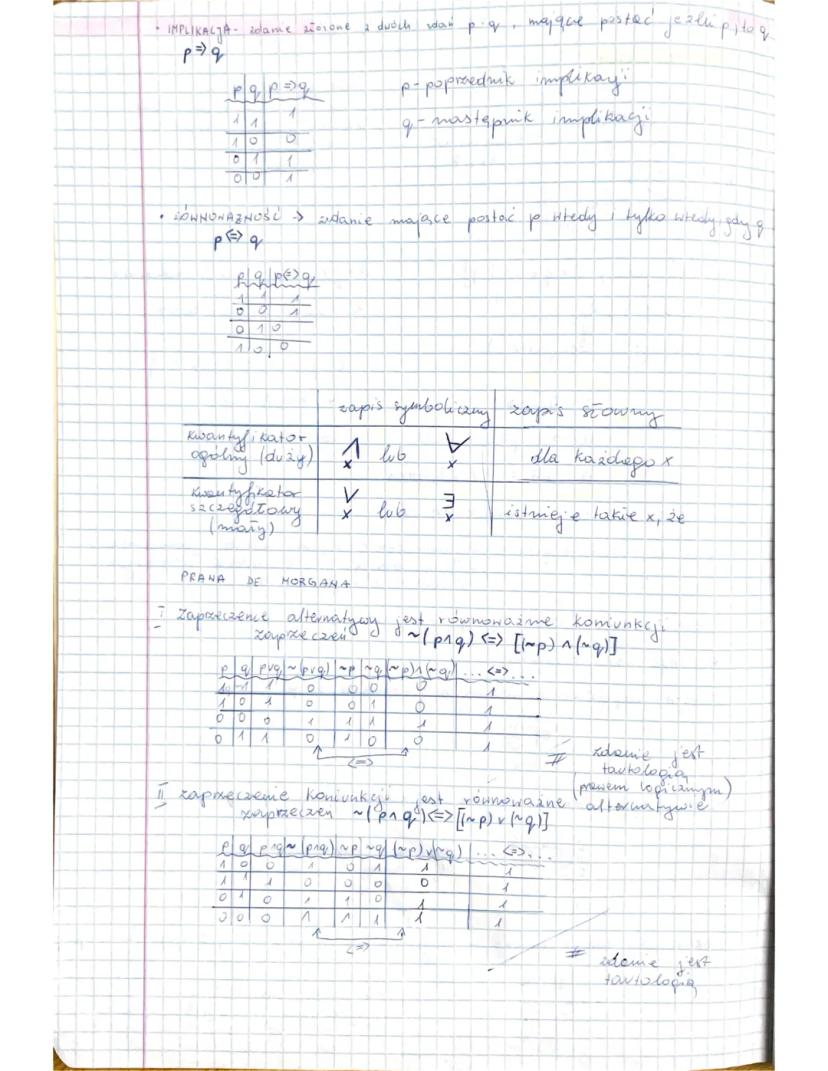 • IMPLIKACJA - zdanie złożone z dwóch zdań p q, mające postać jeżeli p, to q
p => q
p | q | p => q
1 | 1 | 1
1 | 0 | 0
0 | 1 | 1
0 | 0 | 1
p - poprzednik implikacji
q - następnik implikacji
• RÓWNOWAŻNOŚĆ → zdanie mające postać p wtedy i tylko wtedy, gdy q
p <=> q
p | q | p<=>q
1 | 1 | 1
0 | 0 | 1
0 | 1 | 0
1 | 0 | 0
zapis symboliczny | zapis słowny
kwantyfikator
ogólny (duży) | ⋀ x lub ∀ x | dla każdego x
kwantyfikator
szczegółowy
(mały) | ⋁ x lub ∃ x | istnieje takie x, że
PRAWA DE MORGANA
I Zaprzeczenie alternatywy jest równoważne koniunkcji
zaprzeczeń ~(p∧q) <=> [(~p) ∧ (~q)]
p | q | p∨q | ~(p∨q) | ~p | ~q | (~p)∧(~q) | ... <=> ...
1 | 1 | 1 | 0 | 0 | 0 | 0 | 1
1 | 0 | 1 | 0 | 0 | 1 | 0 | 1
0 | 0 | 0 | 1 | 1 | 1 | 1 | 1
0 | 1 | 1 | 0 | 1 | 0 | 0 | 1
<=>
# zdanie jest
tautologią
(prawem logicznym)
II zaprzeczenie koniunkcji jest równoważne alternatywie
zaprzeczeń ~(p∧q) <=> [(~p) ∨ (~q)]
p | q | p∧q | ~(p∧q) | ~p | ~q | (~p)∨(~q) | ... <=> ...
1 | 0 | 0 | 1 | 0 | 1 | 1 | 1
1 | 1 | 1 | 0 | 0 | 0 | 0 | 1
0 | 1 | 0 | 1 | 1 | 0 | 1 | 1
0 | 0 | 0 | 1 | 1 | 1 | 1 | 1
<=>
# zdanie jest
tautologią